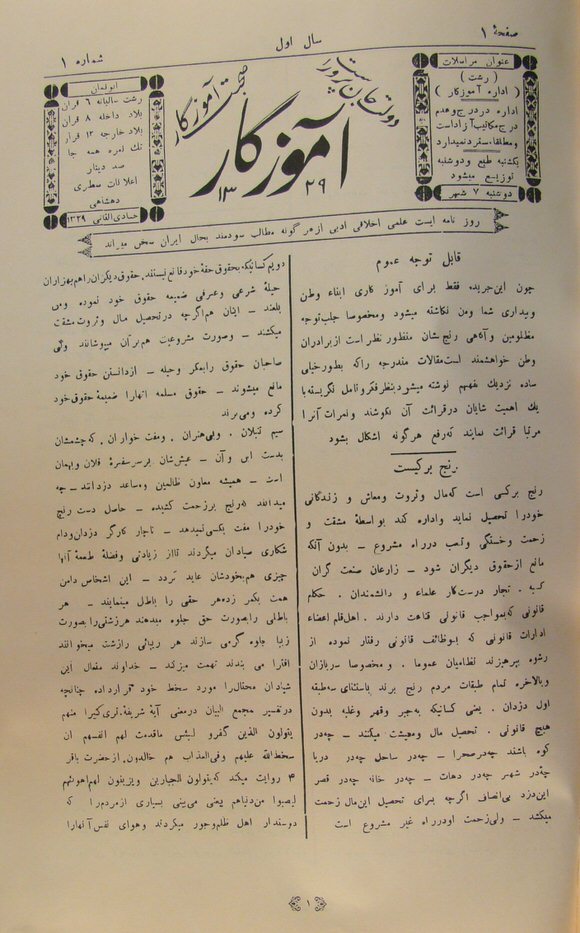 صفحهٔ ۱
سال اول
شماره ۱
عنوان مراسلات
( رشت )
( اداره آموزگار )
اداره در درج و عدم
درج مکاتیب آزاد است
و مطالقا مسترد نمیدارد
یکشنبه طبع و دوشنبه
توزیع میشود
دوشنبه ۷ شهر
دولت جان پرور است
صحبت آموزگار
آموزگار
۱۳۲۹
ابونمان
رشت سالیانه ۶ قران
بلاد داخله ۸ قران
بلاد خارجه ۱۳ قران
تك نمره همه جا
صد دینار
اعلانات سطری
دهشاهی
جمادی الثانی ۱۳۲۹
روز نامه ایست علمی اخلاقی ادبی از هر گونه مطالب سودمند بحال ایران سخن میراند
قابل توجه عموم
چون این جریده فقط برای آموز کاری ابناء وطن
وبیداری شما ومن نگاشته میشود ومخصوصا جلب توجه
مظلومین و آگاهی رنج بشان منظور نظر است از برادران
وطن خواهشمند است مقالات مندرجه را که بطور خیلی
ساده نزدیك بفهم نوشته میشود بنظر فکر و تامل نگریسته با
یك اهمیت شایان در قرائت آن بکوشند و نمرات آنرا
مرتبا قرائت نمایند که رفع هر گونه اشکال بشود
رنج بر کیست
رنج بر کسی است که مال و ثروت ومعاش و زندگانی
خودرا تحصیل نماید واداره کند بواسطهٔ مشقت و
زحمت وخستگی وتعب در راه مشروع – بدون آنکه
مانع از حقوق دیگران شود – زارعان صنعت گران
کسبه . تجار درست کار علماء و دانشمندان . حکام
قانونی که بمواجب قانونی قناعت دارند . اهل قلم اعضاء
ادارات قانونی که بوظائف قانونی رفتار نموده از
رشوه بپرهیزند نظامیان عموما . و مخصوصا سربازان
وبالاخره تمام طبقات مردم رنج برند باستثنای سه طبقه
اول دزدان . یعنی کسانیکه به جبر وقهر وغلبه بدون
هیچ قانونی . تحصیل مال ومعیشت میکنند – چه در
کوه باشند چه در صحرا – چه در ساحل چه در دریا
چه در شهر چه در دهات – چه در خانه چه در قصر
این دزد بی انصاف اگرچه برای تحصیل این مال زحمت
میکشد – ولی زحمت او در راه غیر مشروع است
دویم کسانیکه بحقوق حقهٔ خود قانع نیستند . حقوق دیگران را هم بهزاران
حیلهٔ شرعی وعرفی ضمیمه حقوق خود نموده ومی
بلعند – اینان هم اگرچه در تحصیل مال وثروت مشقت
میکشند – وصورت مشروعیت هم بر آن میپوشانند ولی
صاحبان حقوق را بمکر وحیله – از دانستن حقوق خود
مانع میشوند – حقوق مسلمه آنهارا ضمیمهٔ حقوق خود
کرده ومی برند
سیم تنبلان . وبی هنران . ومفت خواران . که چشمشان
بدست این وآن – عیش شان بر سر سفرهٔ فلان وبهمان
است – همیشه معاون ظالمین ومساعد دزدانند – چه
میدانند که رنج بر زحمت کشیده – حاصل دست رنج
خودرا مفت بکسی نمیدهد – ناچار کارگر دزدان ودام
شکاری صیادان میگردند تا از زیادتی وفضلهٔ طعمهٔ آنها
چیزی هم بخودشان عاید گردد – این اشخاص دامن
همت بکمر زده هر حقی را باطل مینمایند – هر
باطلی را بصورت حق جلوه میدهند هر زشتی را بصورت
زیبا جلوه گر می سازند هر زیبائی را زشت میخوانند
افترا می بندند تهمت میزنند – خداوند متعال این
شیادان محتال را مورد سخط خود قرار داده چنانچه
در تفسیر مجمع البیان در معنی آیهٔ شریفهٔ تری کثیرا منهم
یتولون الذین کفرو لبئس ماقدمت لهم انفسهم ان
سخط الله علیهم وفی العذاب هم خالدون . از حضرت باقر
ع روایت میکند که یتولون الجبارین ویزینون لهم اهوائهم
لیصیبوا من دنیاهم یعنی می بینی بسیاری از مردم را که
دوستدار اهل ظلم وجور میگردند وهوای نفس آنهارا
۱